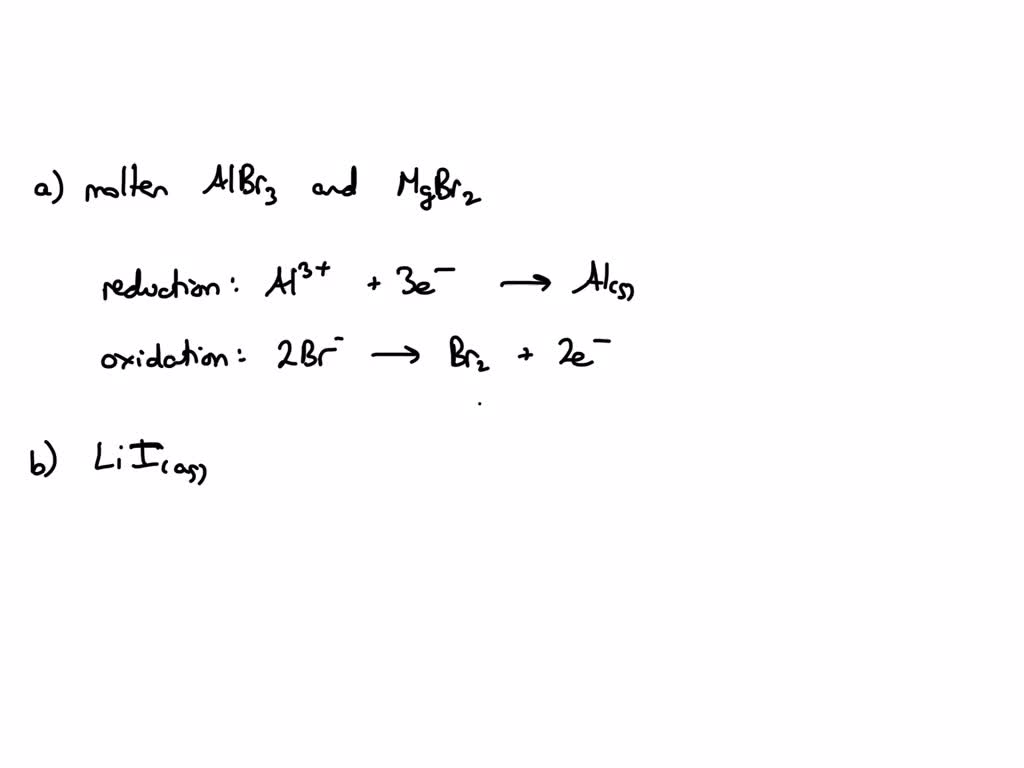 a) molten AlBr₃ and MgBr₂
reduction: Al³⁺ + 3e⁻ → Al(s)
oxidation: 2Br⁻ → Br₂ + 2e⁻
b) LiI(aq)